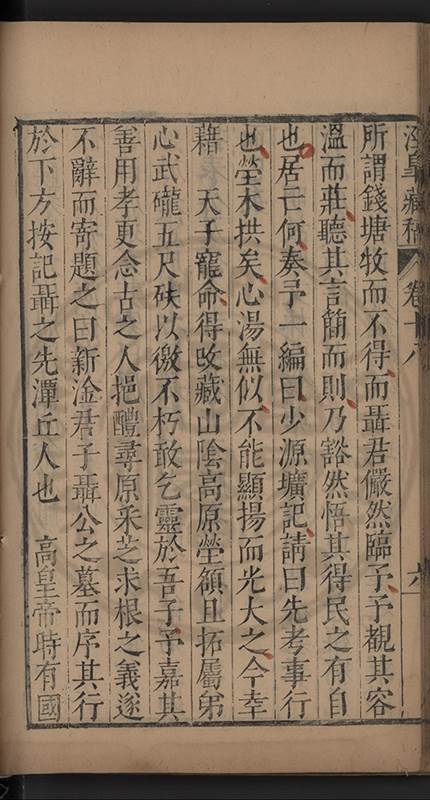 涇皐藏稿 卷十八 六
所謂錢塘牧而不得而聶君儼然臨予予覩其容
溫而莊聽其言簡而則乃豁然悟其得民之有自
也居亡何奏予一編曰少源壙記請曰先考事行
也塋木拱矣心湯無似不能顯揚而光大之今幸
藉 天子寵命得改藏山陰高原塋額且拓屬弟
心武礲五尺砆以徼不朽敢乞靈於吾子予嘉其
善用孝更念古之人挹醴尋原釆芝求根之義遂
不辭而寄題之曰新淦君子聶公之墓而序其行
於下方按記聶之先潭丘人也 高皇帝時有國